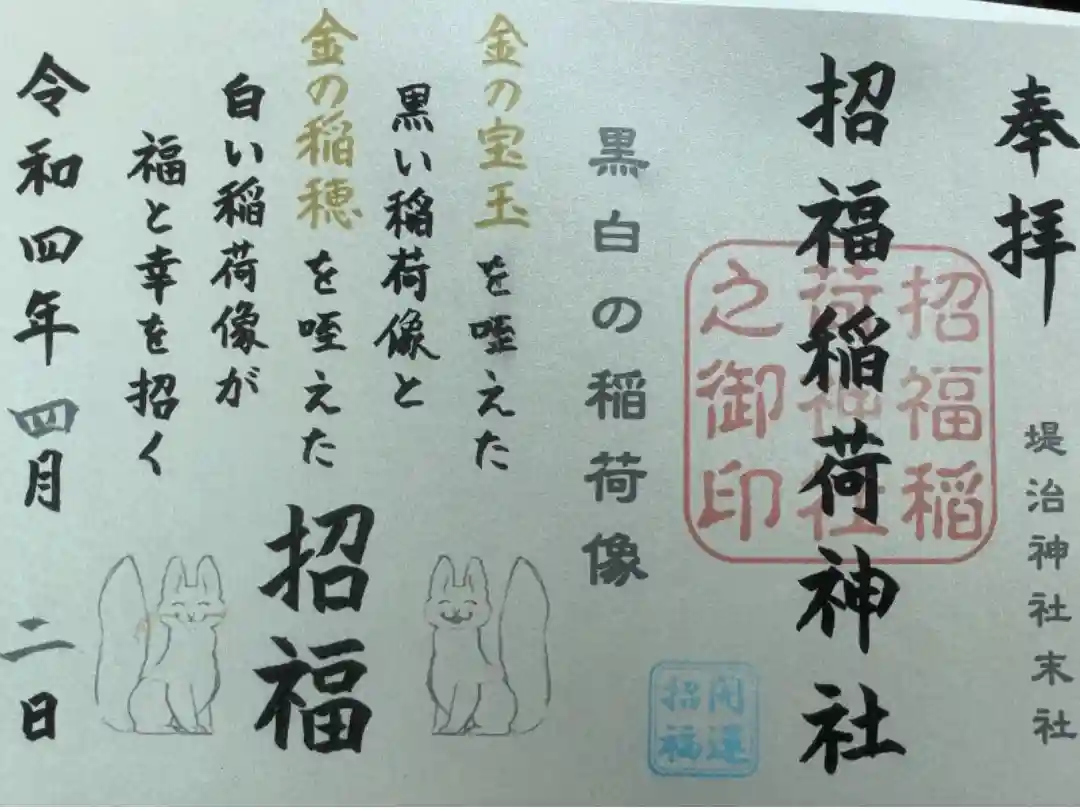 奉拝
堤治神社末社
招福稲荷神社
招福稲
荷神社
之御印
開運
招福
黒白の稲荷像
金の宝玉を咥えた
黒い稲荷像と
金の稲穂を咥えた
白い稲荷像が
福と幸を招く
招福
令和四年四月二日